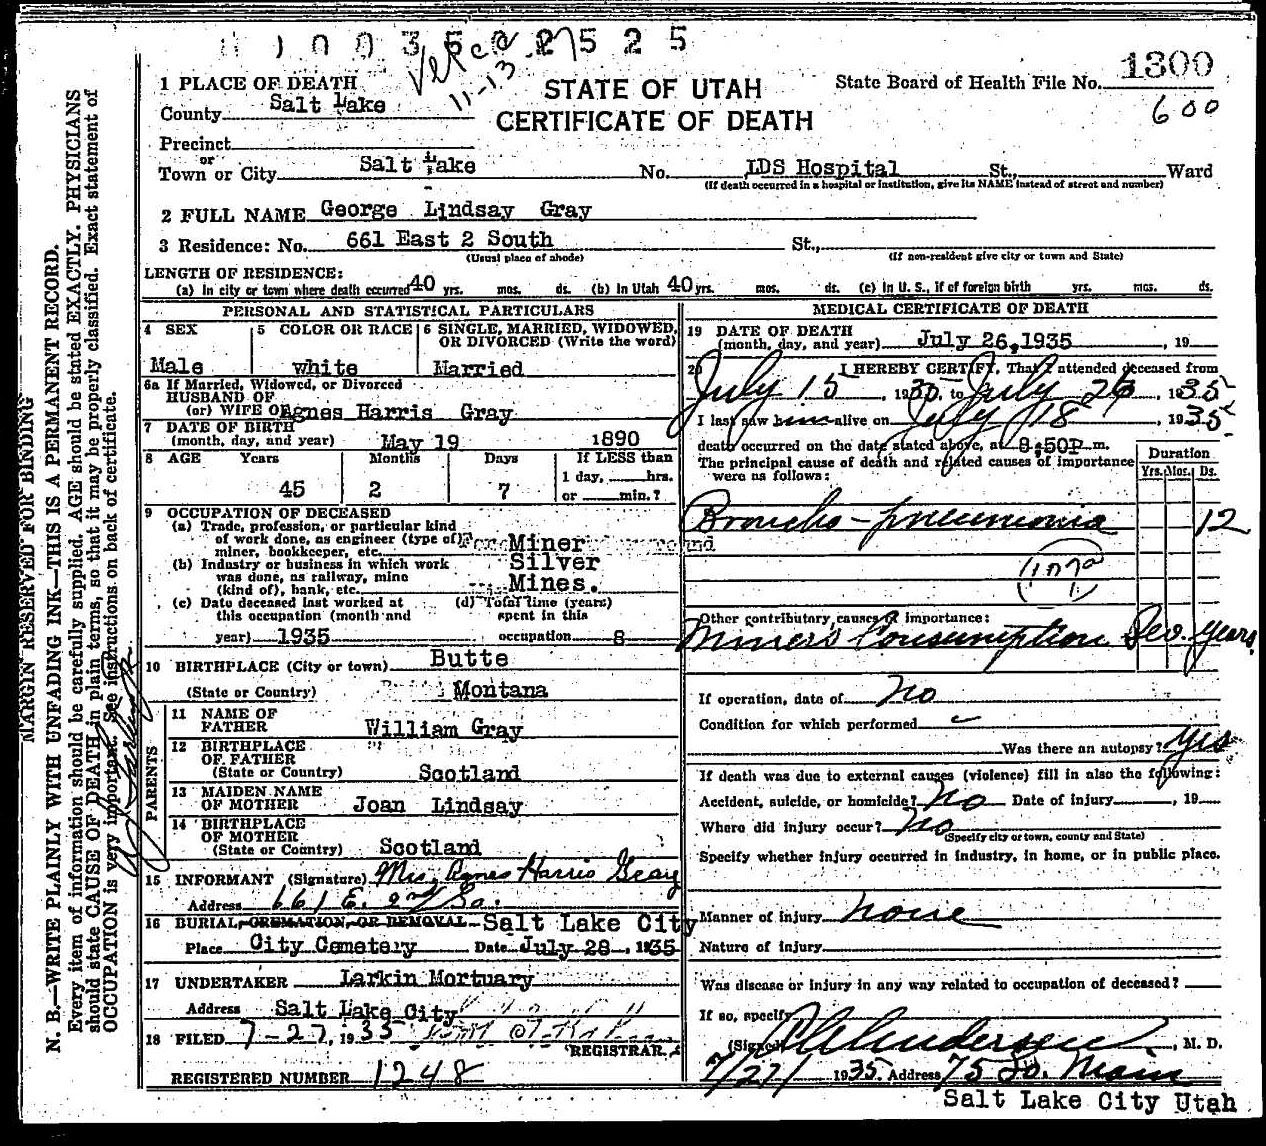 1 0 0 3 5 0 2 7 5 2 5
11-13
1300
600
STATE OF UTAH
CERTIFICATE OF DEATH
State Board of Health File No.
1 PLACE OF DEATH
County Salt Lake
Precinct
or
Town or City Salt Lake No. LDS Hospital St., Ward
(If death occurred in a hospital or institution, give its NAME instead of street and number)
2 FULL NAME George Lindsay Gray
3 Residence: No. 661 East 2 South St.,
(Usual place of abode) (If non-resident give city or town and State)
LENGTH OF RESIDENCE:
(a) In city or town where death occurred 40 yrs. mos. ds. (b) In Utah 40 yrs. mos. ds. (c) In U. S., if of foreign birth yrs. mos. ds.
PERSONAL AND STATISTICAL PARTICULARS
4 SEX Male
5 COLOR OR RACE white
6 SINGLE, MARRIED, WIDOWED, OR DIVORCED (Write the word) Married
6a If Married, Widowed, or Divorced
HUSBAND OF
(or) WIFE OF Agnes Harris Gray
7 DATE OF BIRTH
(month, day, and year) May 19 1890
8 AGE Years Months Days If LESS than
1 day, hrs.
45 2 7 or min.?
9 OCCUPATION OF DECEASED
(a) Trade, profession, or particular kind
of work done, as engineer (type of)
miner, bookkeeper, etc. Miner
(b) Industry or business in which work
was done, as railway, mine
(kind of), bank, etc. Silver Mines.
(c) Date deceased last worked at
this occupation (month and
year) 1935
(d) Total time (years)
spent in this
occupation 8
10 BIRTHPLACE (City or town) Butte
(State or Country) Montana
PARENTS
11 NAME OF
FATHER William Gray
12 BIRTHPLACE
OF FATHER
(State or Country) Scotland
13 MAIDEN NAME
OF MOTHER Joan Lindsay
14 BIRTHPLACE
OF MOTHER
(State or Country) Scotland
15 INFORMANT (Signature) Mrs. Agnes Harris Gray
Address 661 E. 2nd So.
16 BURIAL, CREMATION, OR REMOVAL Salt Lake City
Place City Cemetery Date July 28, 1935
17 UNDERTAKER Larkin Mortuary
Address Salt Lake City
18 FILED 7-27, 1935
REGISTRAR
REGISTERED NUMBER 1248
MEDICAL CERTIFICATE OF DEATH
19 DATE OF DEATH
(month, day, and year) July 26, 1935, 19
20 I HEREBY CERTIFY, That I attended deceased from
July 15, 1935, to July 26, 1935
I last saw him alive on July 18, 1935
death occurred on the date stated above, at 8:50P m.
The principal cause of death and related causes of importance
were as follows:
Duration
Yrs. Mos. Ds.
Broncho-pneumonia 12
107a
Other contributory causes of importance:
Miners Consumption Sev. years
If operation, date of No
Condition for which performed
Was there an autopsy? Yes
If death was due to external causes (violence) fill in also the following:
Accident, suicide, or homicide? No Date of injury , 19
Where did injury occur? No
(Specify city or town, county and State)
Specify whether injury occurred in industry, in home, or in public place.
Manner of injury none
Nature of injury
Was disease or injury in any way related to occupation of deceased?
If so, specify
(Signed) , M. D.
7/27/ 1935. Address 75 So. Main
Salt Lake City Utah
MARGIN RESERVED FOR BINDING
N. B.—WRITE PLAINLY WITH UNFADING INK—THIS IS A PERMANENT RECORD.
Every item of information should be carefully supplied. AGE should be stated EXACTLY. PHYSICIANS
should state CAUSE OF DEATH in plain terms, so that it may be properly classified. Exact statement of
OCCUPATION is very important. See instructions on back of certificate.